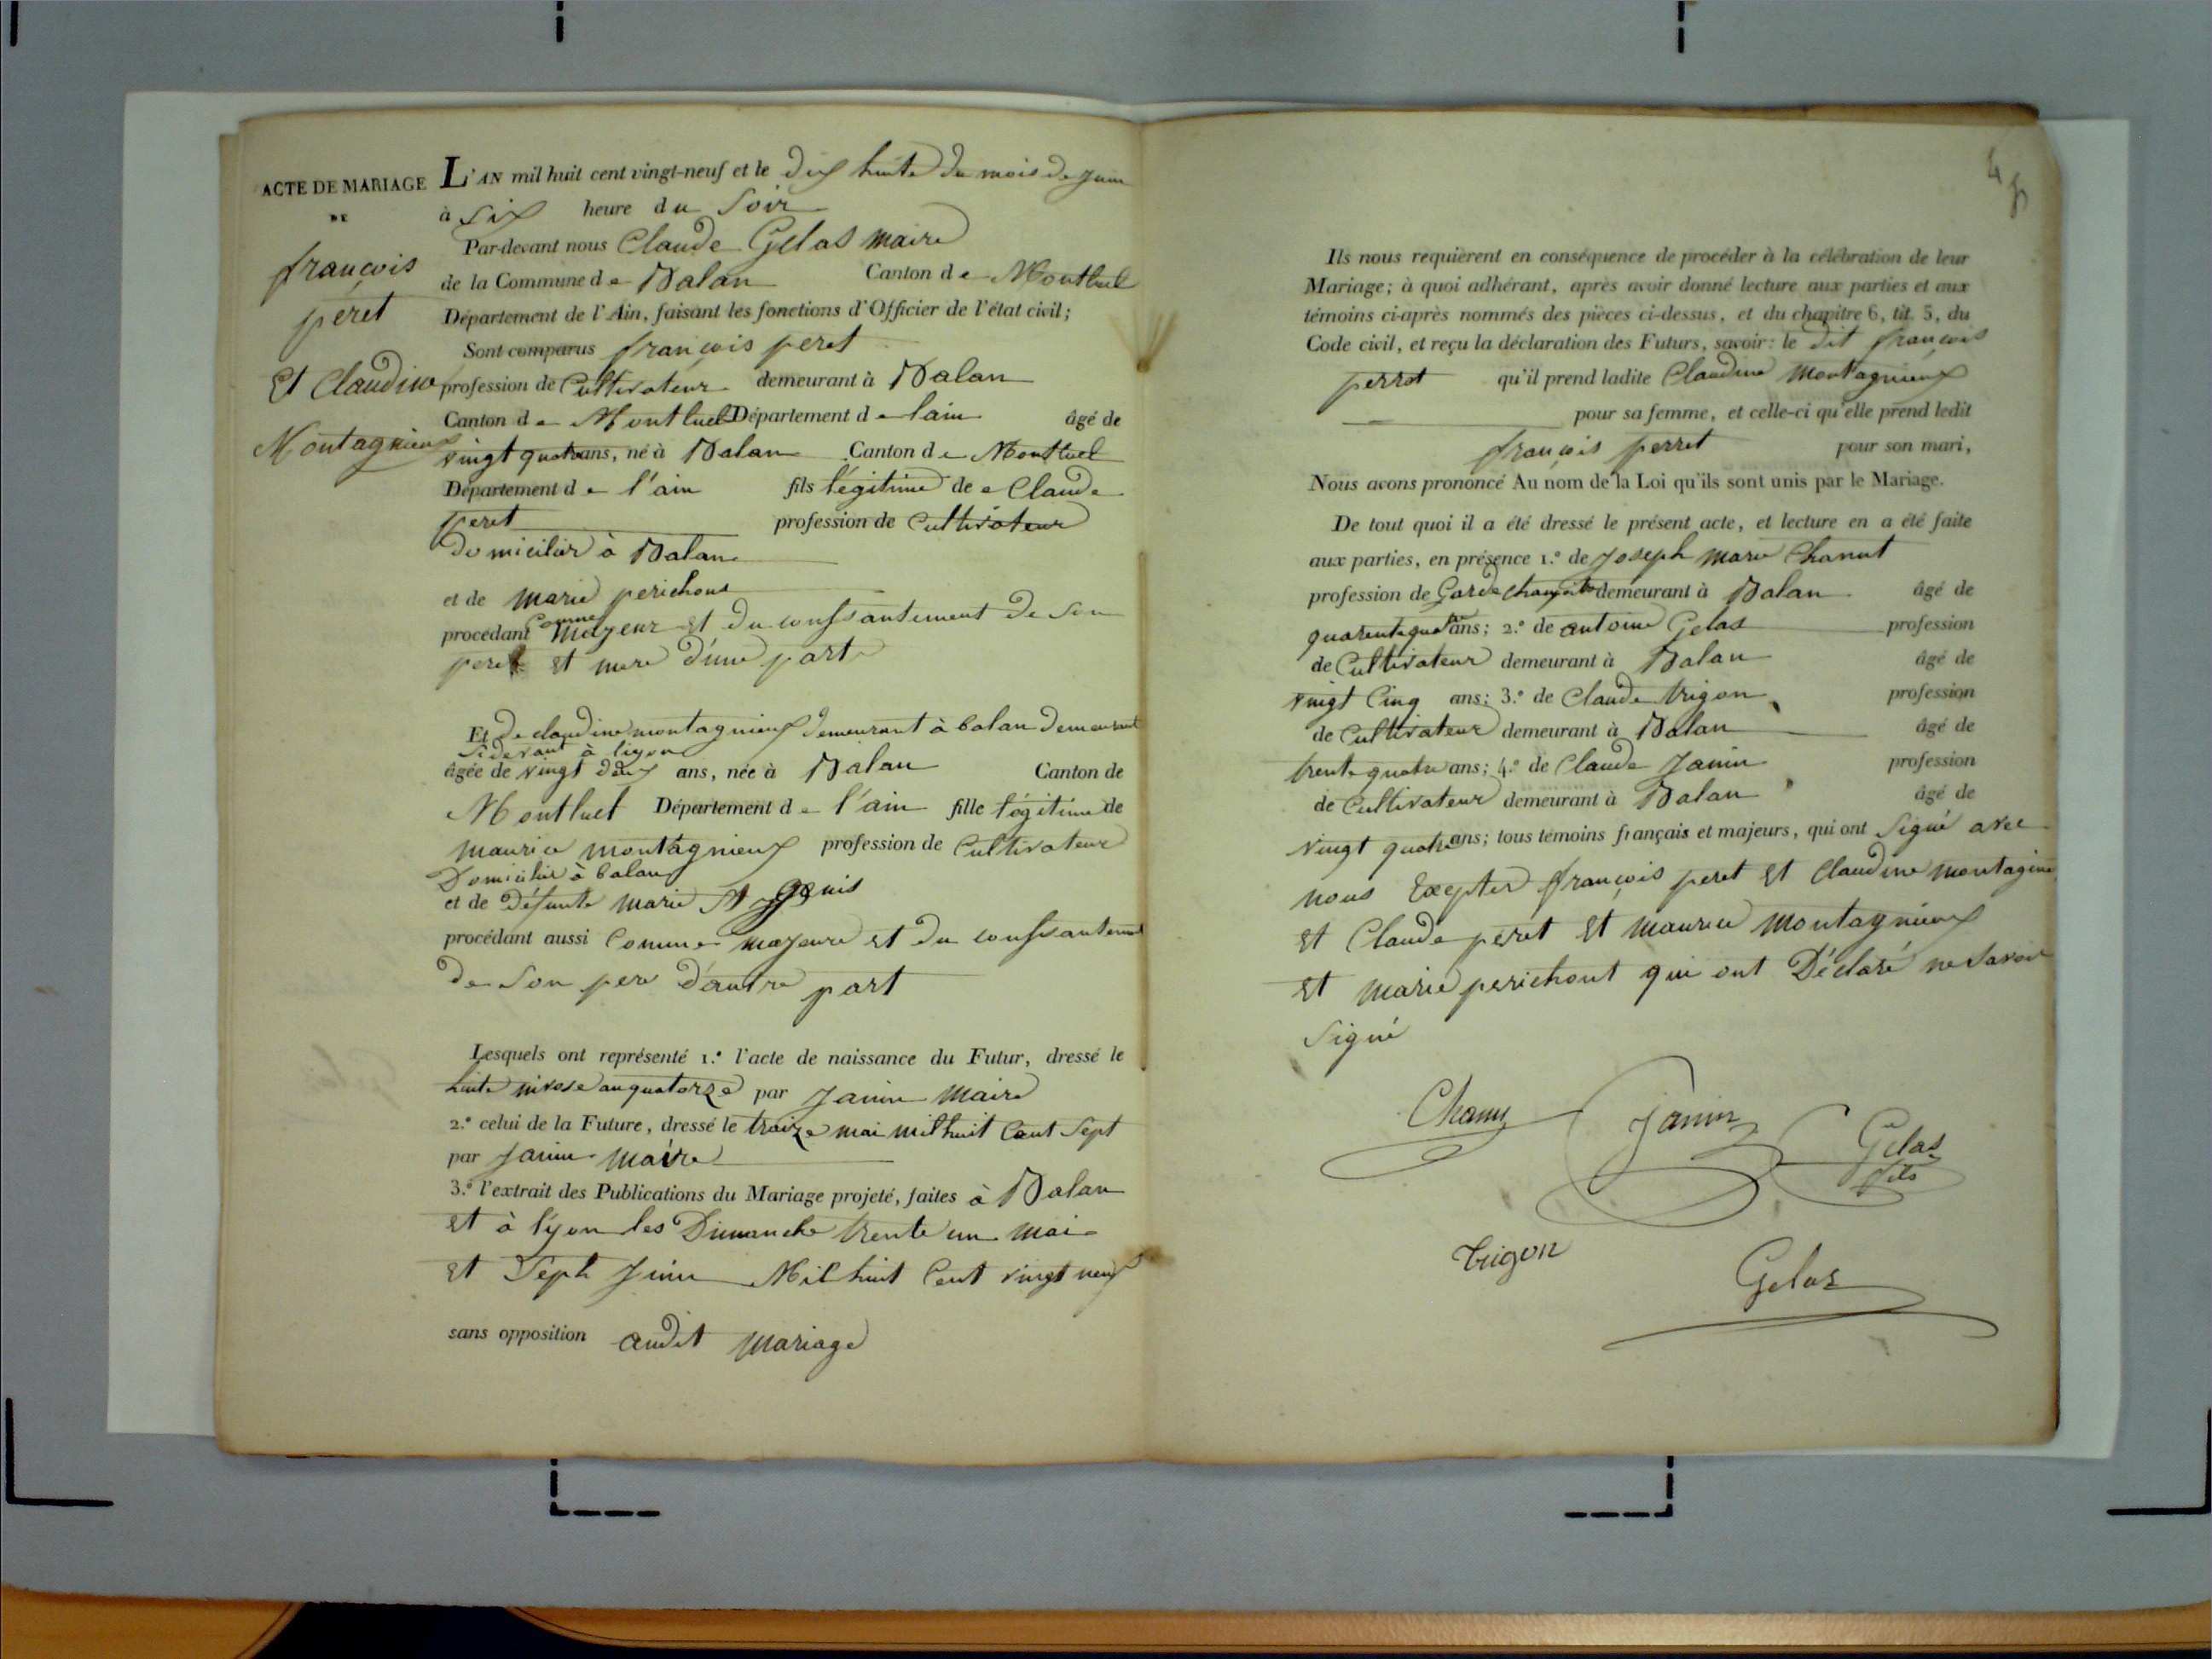 ACTE DE MARIAGE
DE
françois
péret
Et Claudine
Montagnieux
L'AN mil huit cent vingt-neuf et le dix huite du mois de juin
à Six heure du Soir
Par-devant nous Claude Gelas maire
de la Commune de Balan Canton de Montluel
Département de l'Ain, faisant les fonctions d'Officier de l'état civil;
Sont comparus françois peret
profession de Cultivateur demeurant à Balan
Canton de Montluel Département de lain âgé de
vingt quatre ans, né à Balan Canton de Montluel
Département de l'ain fils légitime de Claude
peret profession de Cultivateur
domicilié à Balan
et de marie perichont
procédant Comme mayeur et du conssantement de Son
pere et mere d'une part
Et de claudine montagnieux demeurant à balan demeurant
Sidevant à liyon
âgée de vingt deux ans, née à Balan Canton de
Montluel Département de l'ain fille légitime de
maurice montagnieux profession de Cultivateur
Domicilié à balan
et de Défunte marie St genis
procédant aussi Comme mayeure et du conssantement
de Son pere d'autre part
Lesquels ont représenté 1.º l'acte de naissance du Futur, dressé le
huite nivose an quatorze par Janin Maire
2.º celui de la Future, dressé le traize mai mil huit Cent Sept
par Janin maire
3.º l'extrait des Publications du Mariage projeté, faites à Balan
et à liyon les Dimanche trente un mai
et Seph Juin Mil huit Cent vingt neuf
sans opposition audit mariage
4
Ils nous requièrent en conséquence de procéder à la célébration de leur
Mariage; à quoi adhérant, après avoir donné lecture aux parties et aux
témoins ci-après nommés des pièces ci-dessus, et du chapitre 6, tit. 5, du
Code civil, et reçu la déclaration des Futurs, savoir: le dit françois
perret qu'il prend ladite Claudine Montagnieux
pour sa femme, et celle-ci qu'elle prend ledit
françois perret pour son mari,
Nous avons prononcé Au nom de la Loi qu'ils sont unis par le Mariage.
De tout quoi il a été dressé le présent acte, et lecture en a été faite
aux parties, en présence 1.º de Joseph marie Chanut
profession de Garde champêtre demeurant à Balan âgé de
quarente quatre ans; 2.º de antoine Gelas profession
de Cultivateur demeurant à Balan âgé de
vingt Cinq ans; 3.º de Claude trigon profession
de Cultivateur demeurant à Balan âgé de
trente quatre ans; 4.º de Claude Janin profession
de Cultivateur demeurant à Balan âgé de
vingt quatre ans; tous témoins français et majeurs, qui ont Signé avec
nous Exepter françois peret et Claudine montagine
et Claude peret et maurice montagnieux
et marie perichont qui ont Déclaré ne Savoir
Signé
Chanu
Janin
Gelas
fils
trigon
Gelas